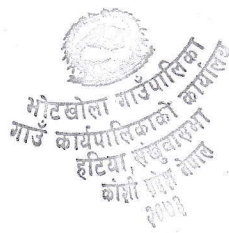 भोटखोला गाउँपालिका
गाउँ कार्यपालिकाको कार्यालय
हटिया, संखुवासभा
कोशी प्रदेश नेपाल
२०७३